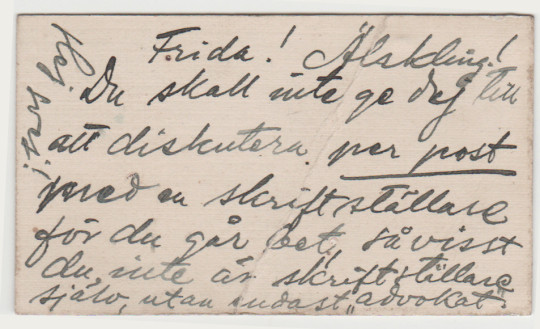 Frida! Älskling!
Du skall inte ge dej till
att diskutera per post
med en skriftställare
för du går bet, såvisst
du inte är skriftställare
själv, utan endast „advokat”.
Hej